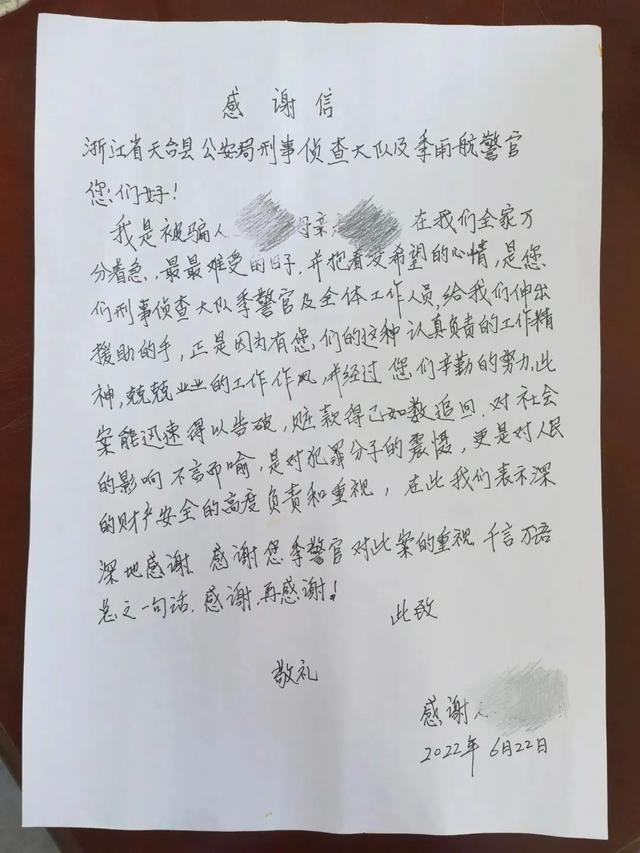 感谢信
浙江省天台县公安局刑事侦查大队及季雨航警官
您们好！
我是被骗人 母亲 在我们全家万
分着急，最最难受的日子，并抱着没希望的心情，是您
们刑事侦查大队季警官及全体工作人员，给我们伸出
援助的手，正是因为有您们的这种认真负责的工作精
神，兢兢业业的工作作风，并经过您们辛勤的努力，此
案能迅速得以告破，赃款得已如数追回，对社会
的影响不言而喻，是对犯罪分子的震慑，更是对人民
的财产安全的高度负责和重视，在此我们表示深
深地感谢 感谢您季警官对此案的重视 千言万语
总之一句话，感谢，再感谢！
此致
敬礼
感谢人
2022年6月22日